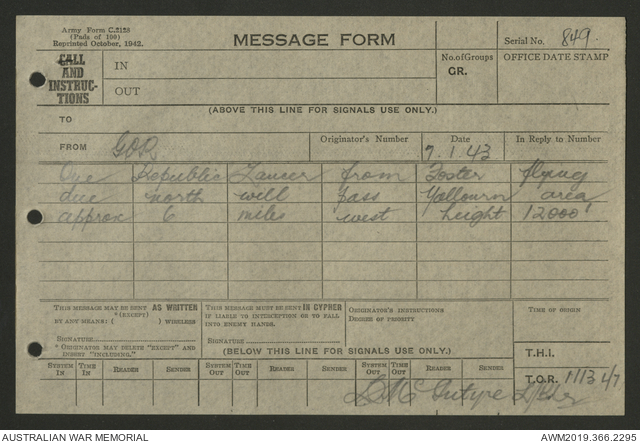 Army Form C.2128
(Pads of 100)
Reprinted October, 1942.
MESSAGE FORM
Serial No. 849.
CALL
AND
INSTRUC-
TIONS
IN
OUT
No. of Groups
GR.
OFFICE DATE STAMP
(ABOVE THIS LINE FOR SIGNALS USE ONLY.)
TO
FROM GOR
Originator's Number
Date
7.1.43
In Reply to Number
One Republic Lancer from Foster flying
due north will pass Yallourn area
approx 6 miles west height 12000'
THIS MESSAGE MAY BE SENT AS WRITTEN
*(EXCEPT)
BY ANY MEANS: ( ) WIRELESS
SIGNATURE
* ORIGINATOR MAY DELETE "EXCEPT" AND
INSERT "INCLUDING."
THIS MESSAGE MUST BE SENT IN CYPHER
IF LIABLE TO INTERCEPTION OR TO FALL
INTO ENEMY HANDS.
SIGNATURE
ORIGINATOR'S INSTRUCTIONS
DEGREE OF PRIORITY
TIME OF ORIGIN
(BELOW THIS LINE FOR SIGNALS USE ONLY.)
T.H.I.
SYSTEM IN TIME IN READER SENDER SYSTEM OUT TIME OUT READER SENDER SYSTEM OUT TIME OUT READER SENDER
T.O.R. 1113
AUSTRALIAN WAR MEMORIAL
AWM2019.366.2295